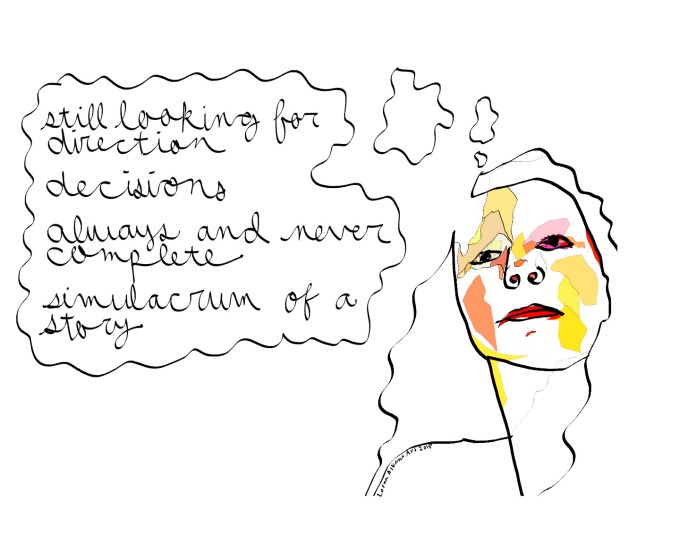 still looking for
direction
decisions
always and never
complete
simulacrum of a
story
Art 2018